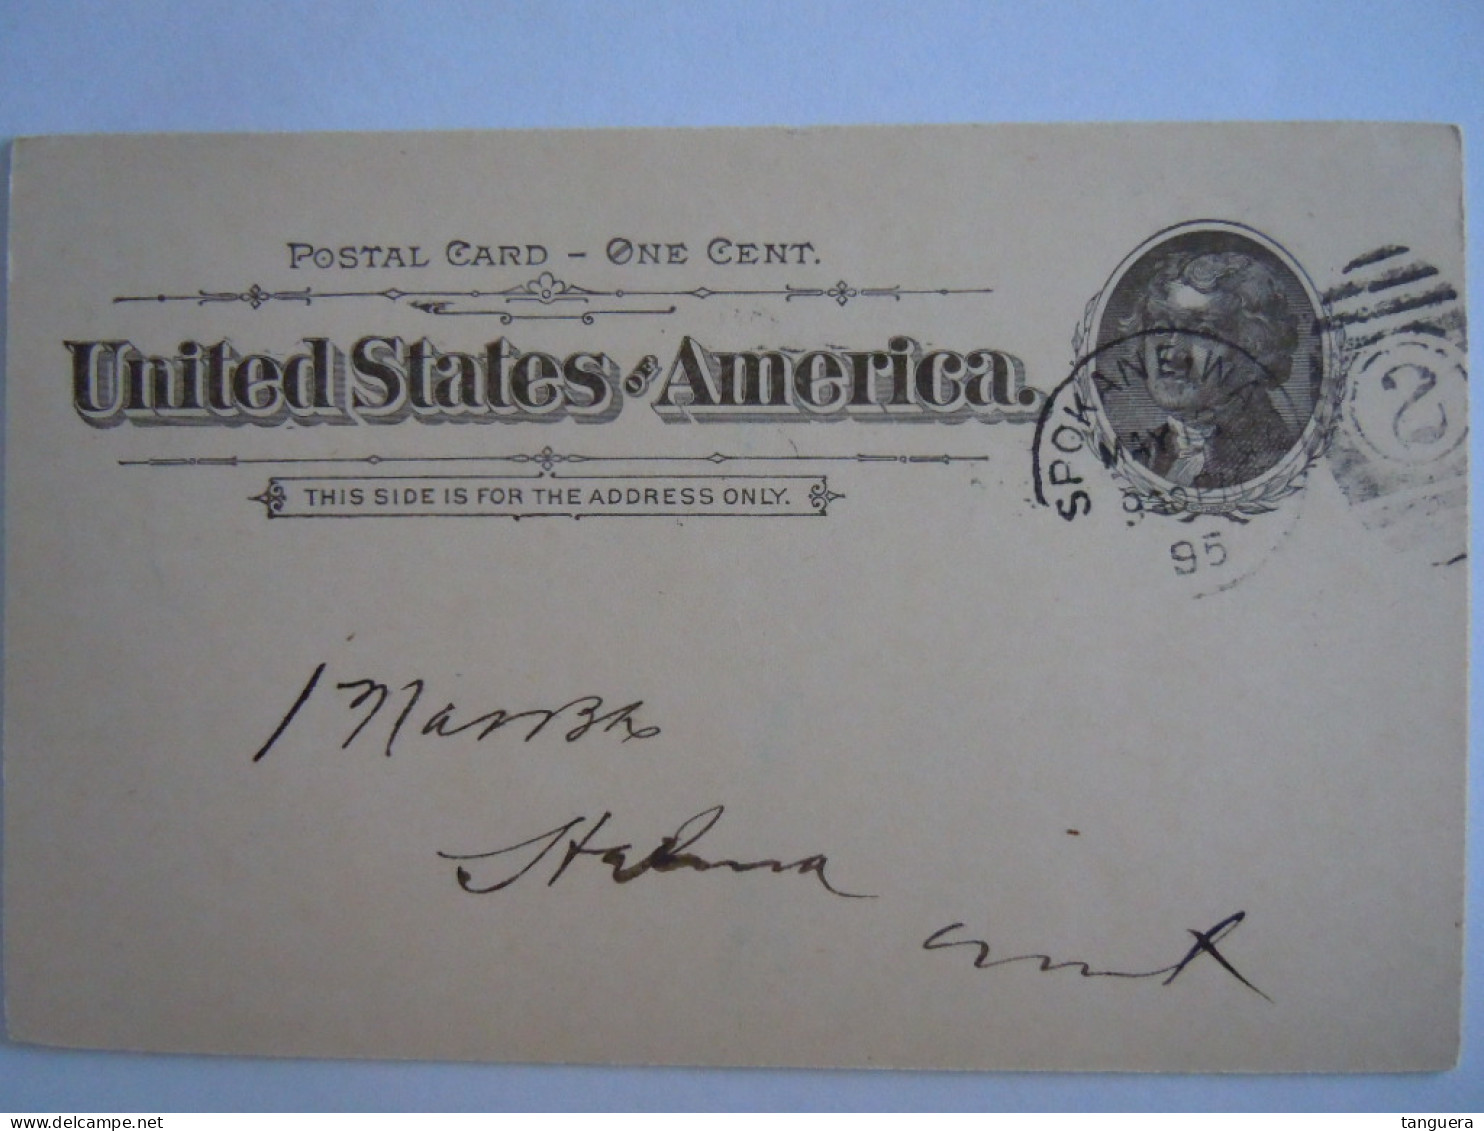 POSTAL CARD - ONE CENT.
United States OF America.
THIS SIDE IS FOR THE ADDRESS ONLY.
SPOKANE, WA
MAY
95
2
Helena
Mont
tanguera